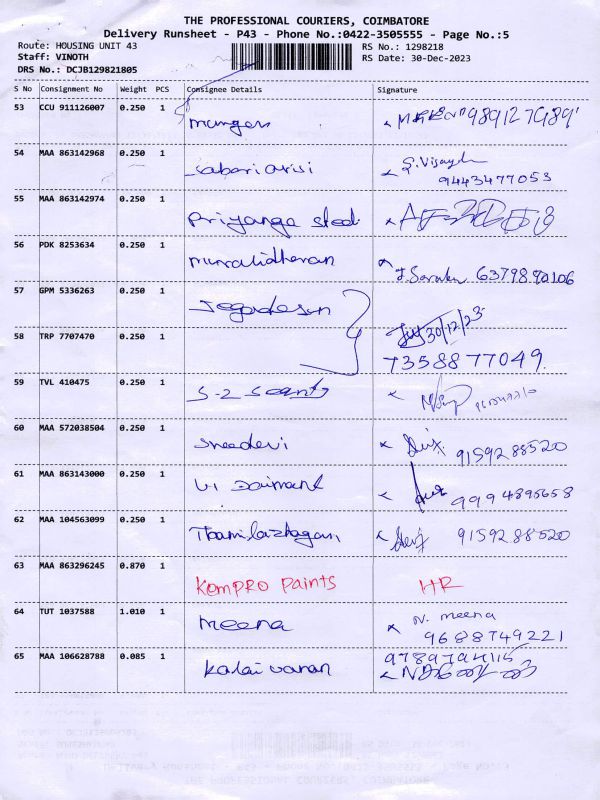 THE PROFESSIONAL COURIERS, COIMBATORE
Delivery Runsheet - P43 - Phone No.:0422-3505555 - Page No.:5
Route: HOUSING UNIT 43
RS No.: 1298218
Staff: VINOTH
RS Date: 30-Dec-2023
DRS No.: DCJB129821805
S No Consignment No Weight PCS Consignee Details Signature
53 CCU 911126007 0.250 1
54 MAA 863142968 0.250 1 Sabari arisi S. Vijay
9443477053
55 MAA 863142974 0.250 1 Priyanga
56 PDK 8253634 0.250 1 Muralidharan
57 GPM 5336263 0.250 1 Jegadesan
30/12/23
58 TRP 7707470 0.250 1 7358877049
59 TVL 410475 0.250 1
60 MAA 572038504 0.250 1 Sreedevi 9159288520
61 MAA 863143000 0.250 1 9994895658
62 MAA 104563099 0.250 1 Thamilazhagan 9159288520
63 MAA 863296245 0.870 1 Kompro Paints HR
64 TUT 1037588 1.010 1 Meena N. meena
9688749221
65 MAA 106628788 0.085 1 Kalaivanan